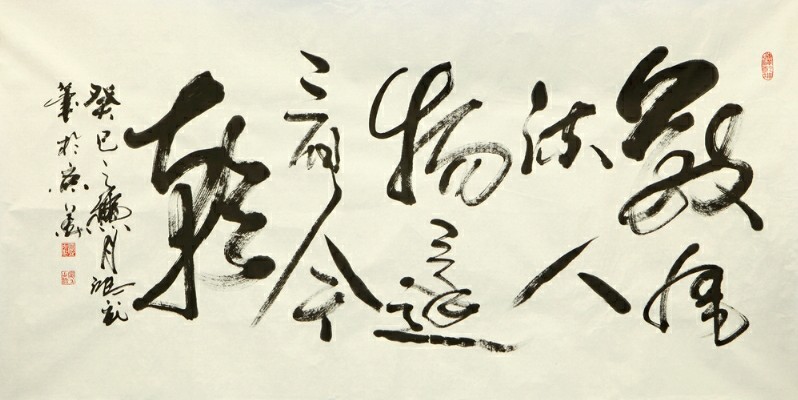 數風
流人
物還
看今
朝
癸巳之臘月
筆於京華